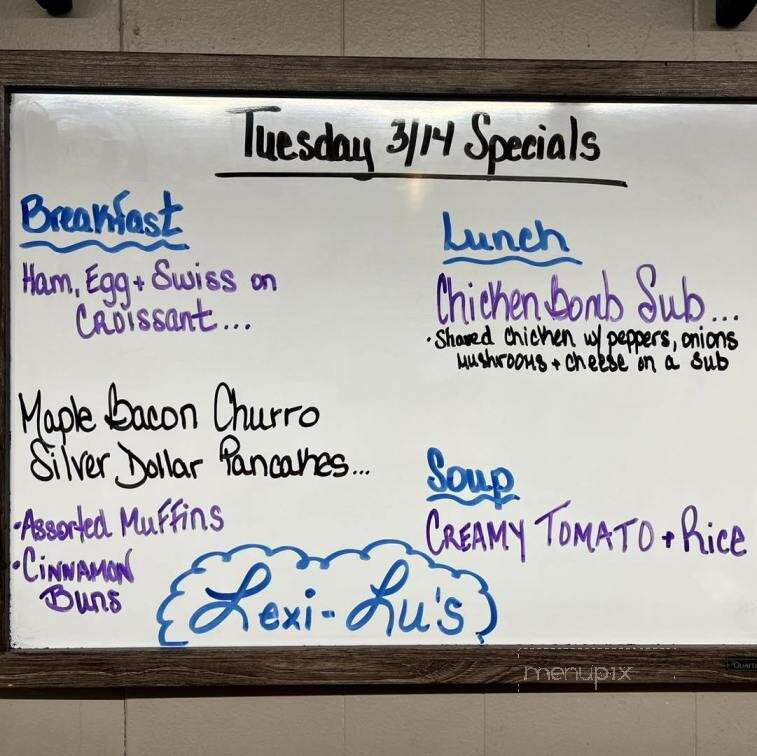 Tuesday 3/14 Specials
Breakfast
Ham, Egg + Swiss on
Croissant...
Maple Bacon Churro
Silver Dollar Pancakes...
• Assorted Muffins
• Cinnamon
Buns
Lunch
Chicken Bomb Sub...
• Shaved chicken w/ peppers, onions
mushrooms + cheese on a sub
Soup
Creamy Tomato + Rice
Lexi-Lu's
menupix